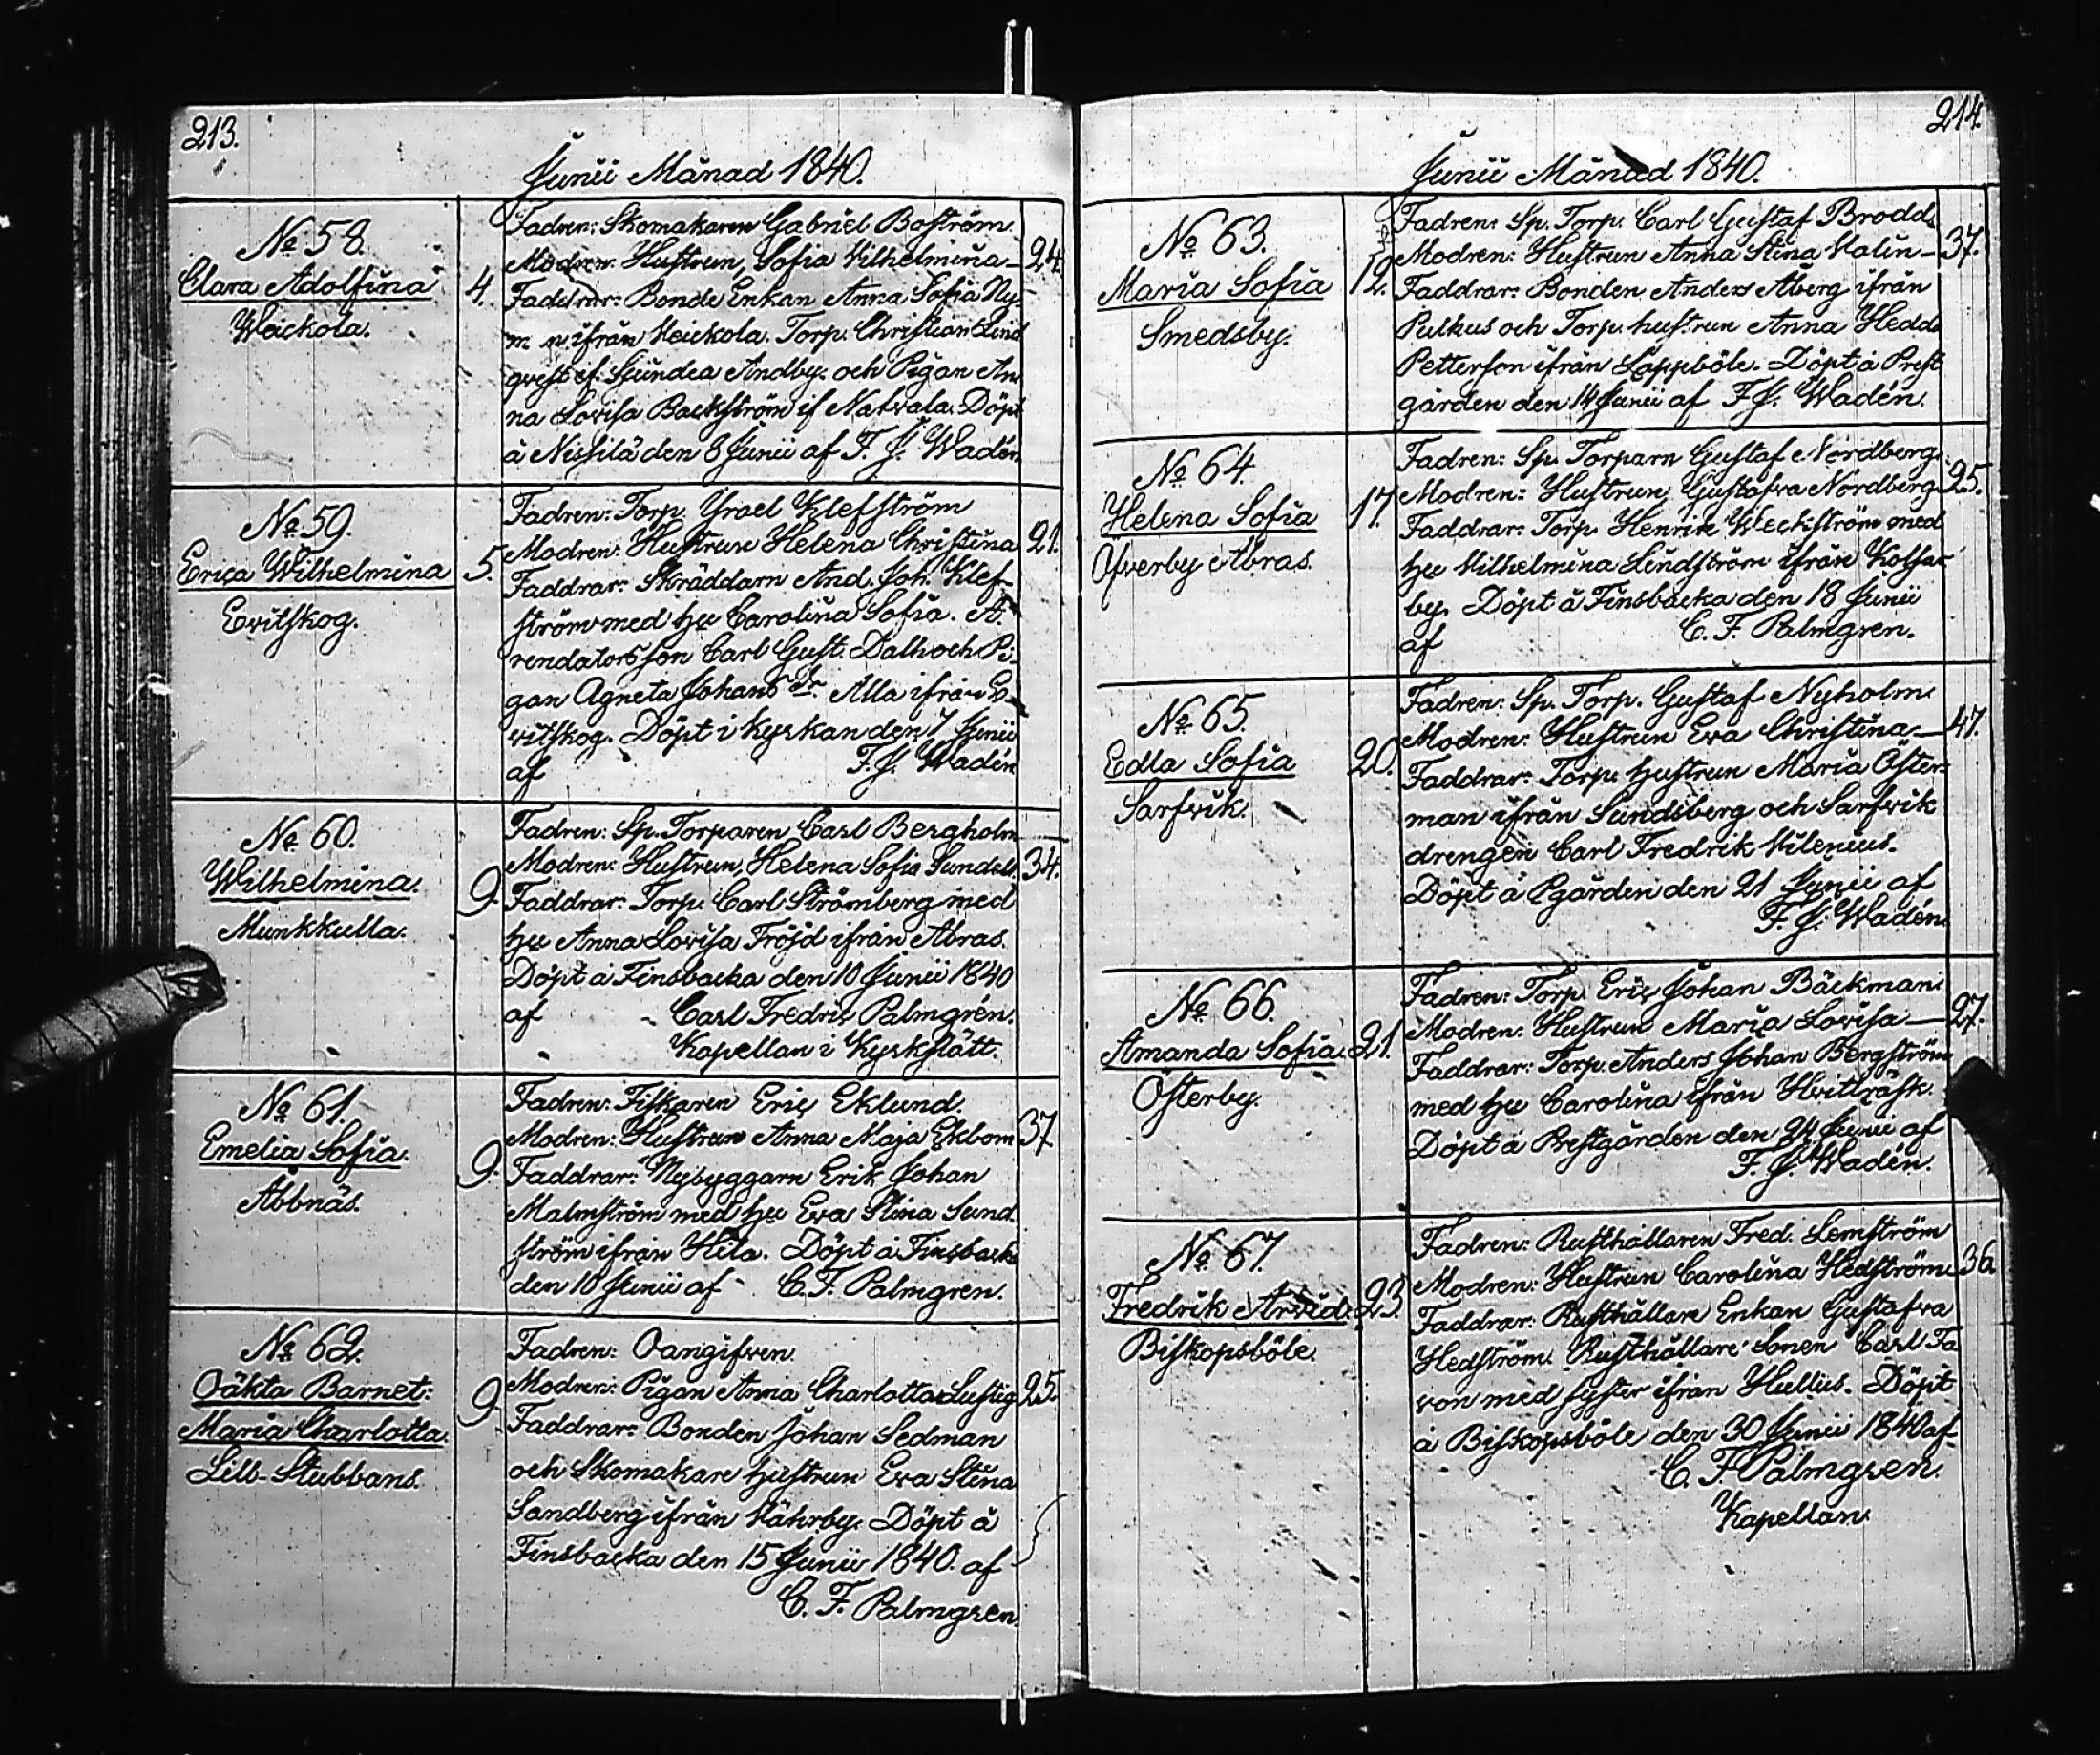 213.
Junii Månad 1840.
No 58.
Clara Adolfina
Weickola.
4.
Fadren: Skomakaren Gabriel Boström
Modren: Hustrun Sofia Vilhelmina — 24.
Faddrar: Bonde Enkan Anna Sofia Ny-
m n ifrån Veickola. Torp. Christian Lind
qvist if. Sjundea Andby. och Pigan An
na Lovisa Backström if Natvala. Döpt
å Nissilä den 8 Junii af F. J. Wadén
No 59.
Erica Wilhelmina
Evitskog.
5.
Fadren: Torp. Ysrael Klefström
Modren: Hustrun Helena Christina 21.
Faddrar: Skräddarn And. Joh. Klef-
ström med hu Carolina Sofia. A.
rendators son Carl Gust. Dalh och Pi-
gan Agneta Johans Dr. Alla ifrån E-
vitskog. Döpt i kyrkan den 7 Junii
af F. J. Wadén
No 60.
Wilhelmina.
Munkkulla.
9.
Fadren: Sp. Torparen Carl Bergholm
Modren: Hustrun Helena Sofia Sundell. 34.
Faddrar: Torp. Carl Strömberg med
hu Anna Lovisa Fröjd ifrån Abras.
Döpt å Finsbacka den 10 Junii 1840
af Carl Fredric Palmgrén.
Kapellan i Kyrkslätt.
No 61.
Emelia Sofia.
Åbbnäs.
9.
Fadren: Fiskaren Eric Eklund.
Modren: Hustrun Anna Maja Ekbom 37
Faddrar: Nybyggarn Erik Johan
Malmström med hu Eva Stina Sund
ström ifrån Hila. Döpt å Finsbacka
den 10 Junii af C. F. Palmgren.
No 62.
Oäkta Barnet:
Maria Charlotta.
Lill-Stubbans.
9.
Fadren: Oangifven.
Modren: Pigan Anna Charlotta Lustig 25.
Faddrar: Bonden Johan Sedman
och Skomakare hustrun Eva Stina
Sandberg ifrån Vährby. Döpt å
Finsbacka den 15 Junii 1840. af
C. F. Palmgren.
214.
Junii Månad 1840.
No 63.
Maria Sofia
Smedsby.
12.
Fadren: Sp. Torp. Carl Gustaf Brodd.
Modren: Hustrun Anna Stina Malin — 37.
Faddrar: Bonden Anders Åberg ifrån
Pulkus och Torp. hustrun Anna Hedd.
Petterson ifrån Lappböle. Döpt å Prest
gården den 14 Junii af F. J. Wadén.
No 64.
Helena Sofia
Öfverby Abras.
17.
Fadren: Sp. Torparn Gustaf Nordberg.
Modren: Hustrun Gustafva Nordberg 25.
Faddrar: Torp. Henrik Weckström med
hu Vilhelmina Lindström ifrån Kolsar-
by. Döpt å Finsbacka den 18 Junii
af C. F. Palmgren.
No 65.
Edla Sofia
Sarfvik.
20.
Fadren: Sp. Torp. Gustaf Nyholm.
Modren: Hustrun Eva Christina — 47.
Faddrar: Torp. hustrun Maria Öster-
man ifrån Sundsberg och Sarfvik
drengen Carl Fredrik Vilenius.
Döpt å Pgården den 21 Junii af
F. J. Wadén.
No 66.
Amanda Sofia.
Österby.
21.
Fadren: Torp. Eric Johan Bäckman.
Modren: Hustrun Maria Lovisa — 27.
Faddrar: Torp. Anders Johan Bergström
med hu Carolina ifrån Hvitträsk.
Döpt å Prestgården den 24 Junii af
F. J. Wadén.
No 67.
Fredrik Arvid.
Biskopsböle.
23.
Fadren: Rusthållaren Fred. Lemström
Modren: Hustrun Carolina Hedström. 36.
Faddrar: Rusthållare Enkan Gustafva
Hedström. Rusthållare Sonen Carl Fa
von med syster ifrån Hullus. Döpt
å Biskopsböle den 30 Junii 1840 af
C. F. Palmgren.
Kapellan.